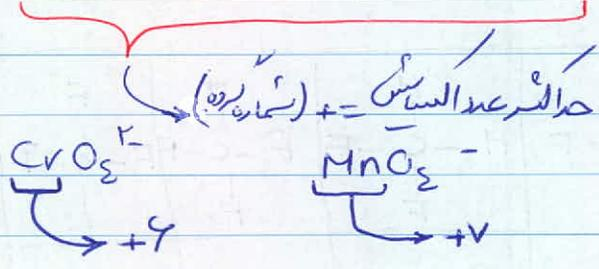 حداکثر عدد اکسایش = + (شماره گروه)
CrO۴²⁻ MnO۴⁻
+۶ +۷